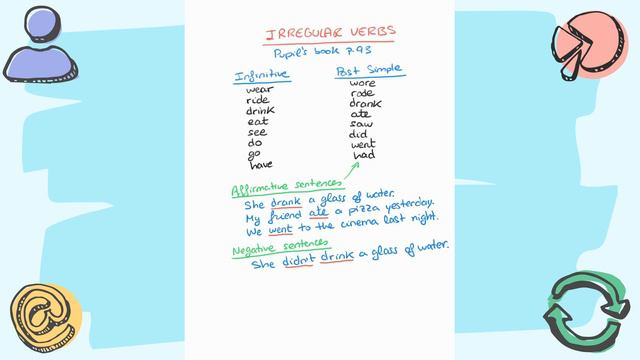 IRREGULAR VERBS
Pupil's book p.93
Infinitive Past Simple
wear wore
ride rode
drink drank
eat ate
see saw
do did
go went
have had
Affirmative sentences
She drank a glass of water.
My friend ate a pizza yesterday.
We went to the cinema last night.
Negative sentences
She didn't drink a glass of water.
@